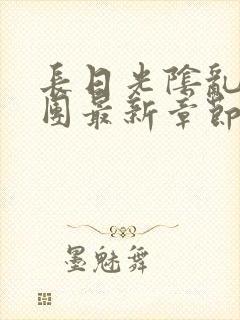 長日光陰亂
團最新章節
墨魅舞